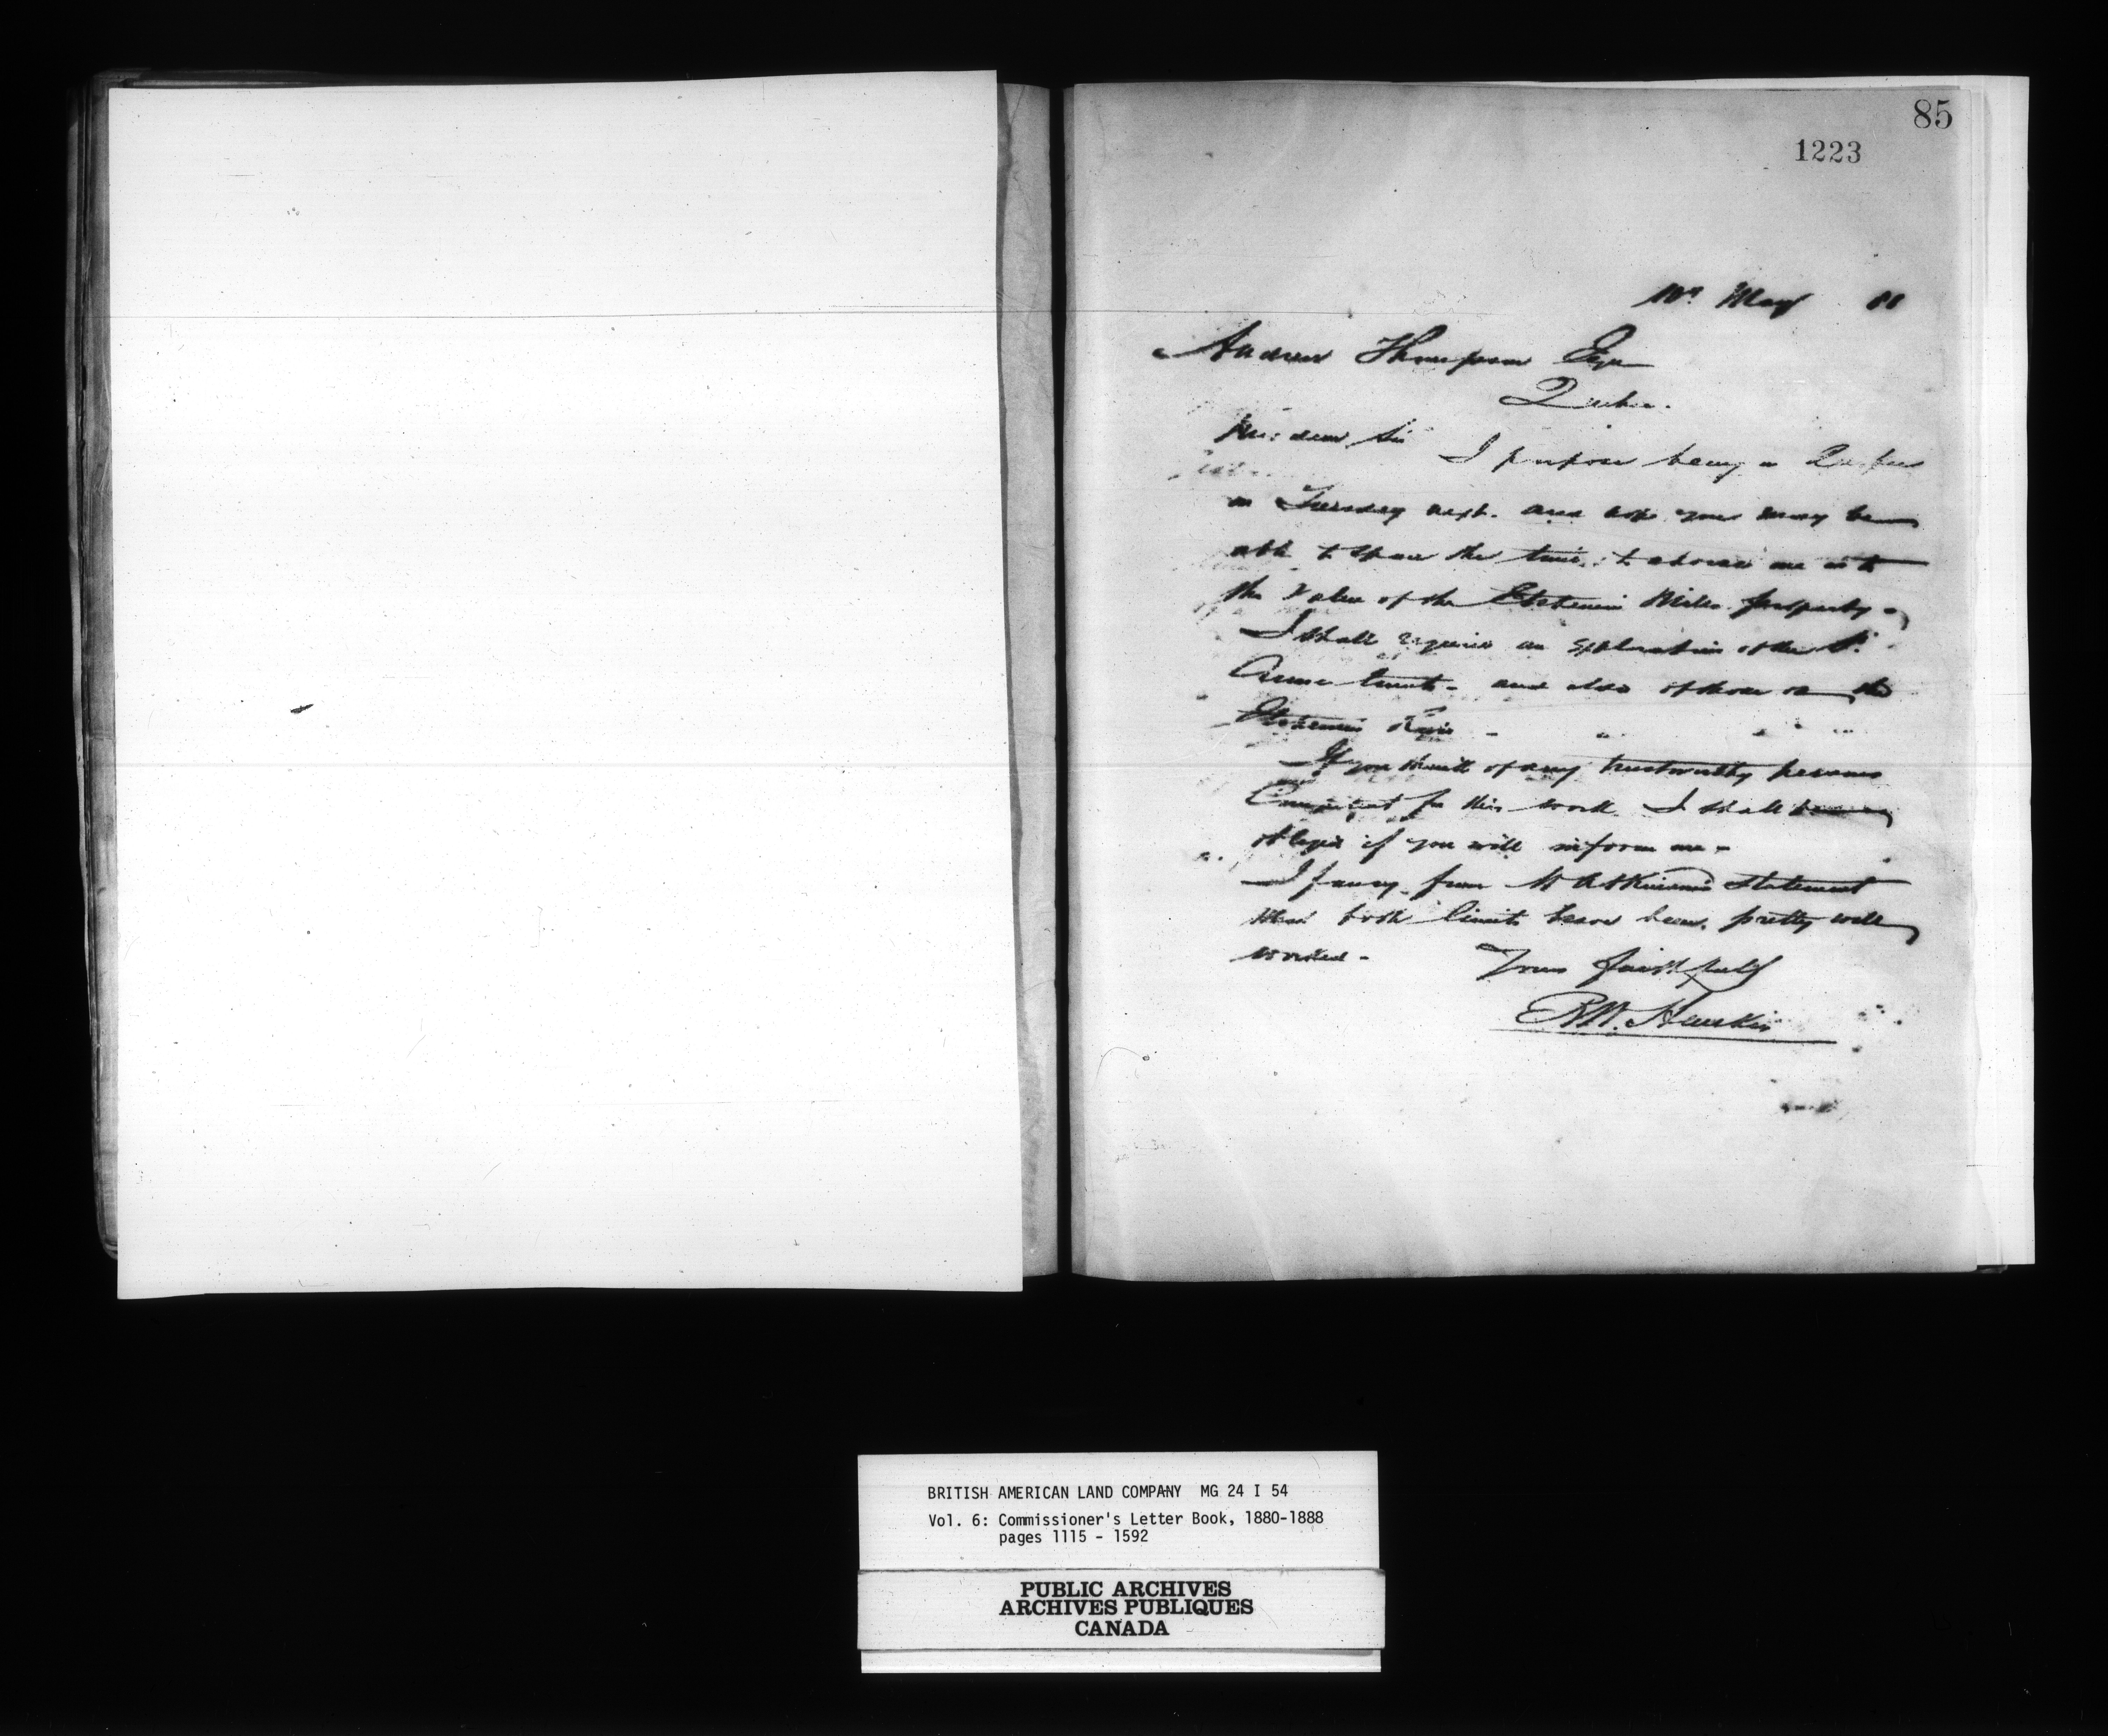 85
1223
May 88
Andrew Thompson Esqr
Quebec.
My dear Sir
I purpose being in Quebec
on Tuesday next. and hope you may be
able to spare the time, to advise me as to
the Value of the Etchemin Mills property -
I shall require an exploration of the St.
Anne limits - and also of those on the
Etchemin River -
If you think of any trustworthy persons
Competent for this work. I shall be
obliged if you will inform me -
I fancy from Mr Atkinson's statement
that both limits have been pretty well
worked -
Yours faithfully
R.W. Heneker
BRITISH AMERICAN LAND COMPANY MG 24 I 54
Vol. 6: Commissioner's Letter Book, 1880-1888
pages 1115 - 1592
PUBLIC ARCHIVES
ARCHIVES PUBLIQUES
CANADA